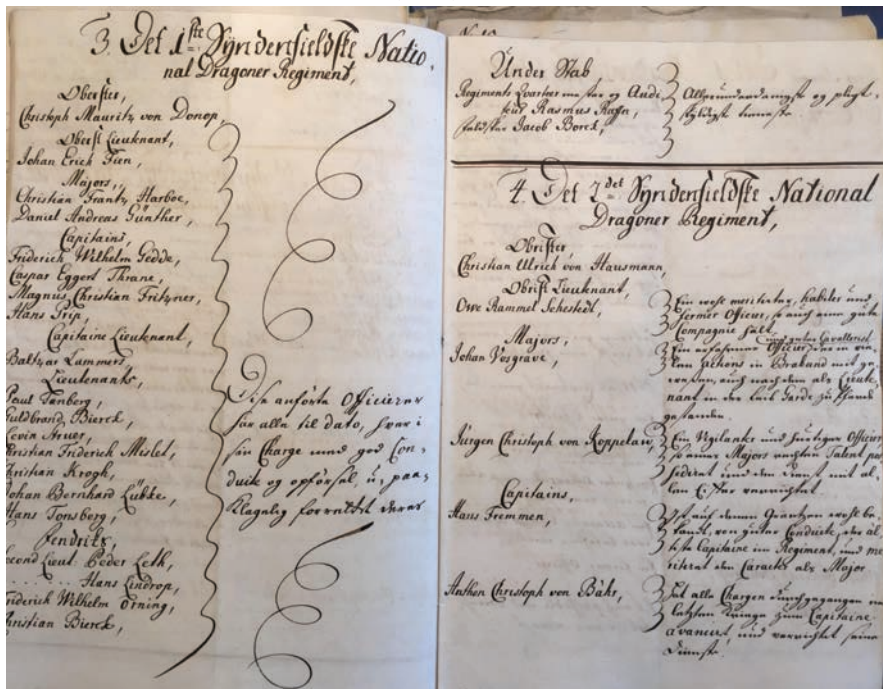 3. Det 1ste Synderfieldske Natio-
nal Dragoner Regiment,
Oberster,
Christoph Mauritz von Donop,
Oberst Lieutnant,
Johan Erich Fien,
Majors,
Christian Frantz Harboe,
Daniel Andreas Günther,
Capitains,
Friderich Wilhelm Gedde,
Caspar Eggert Thrane,
Magnus Christian Fritzner,
Hans Trip,
Capitaine Lieutnant,
Baltzar Lammers,
Lieutenants,
Paul Tonberg,
Guldbrand Bierck,
Christian Friderich Mislet,
Christian Krogh,
Johan Bernhard Lübke,
Hans Tonsberg,
Fendriks,
Second Lieut: Peder Leth,
........ Hans Lindrop,
Friderich Wilhelm Örning,
Christian Bierck,
Dise anførte Officierer
har alle til dato, hver i
sin Charge med god Con-
duite og opförsel, u-paa-
Klagelig forrettet deres
Under Stab
Regiments Qvarteermester og Audi-
teur Rasmus Rafn,
Feldskier Jacob Borck,
Allerunderdanigst og pligt-
skyldigst tienneste.
4. Det 2det Synderfieldske National
Dragoner Regiment,
Obrister,
Christian Ulrich von Hausmann,
Obrist Lieutnant,
Owe Rammel Sehestedt,
Ein wohl meritirter, habiler und
fermer Officier, so auch eine gute
Compagnie hält,
Majors,
Johan Vosgrave,
Ein erfahrner Officier und guter Cavallerist, der in vie-
len Actions in Braband mit ge-
wesen, auch nachdem als Lieute-
nant in der Leib Garde zu Pferde
gestanden.
Jürgen Christoph von Koppelau,
Ein Vigilanter und hurtiger Officier,
so eines Majors rechten Talent pos-
sederet und den Dienst mit al-
len Eiffer verrichtet.
Capitains,
Hans Fremmen,
Ist auf denen Gräntzen wohl be-
kandt, von guter Conduite, der äl-
teste Capitaine im Regiment, und me-
riteret den Caracter als Major.
Anthon Christoph von Bähr,
Hat alle Chargen durchgegangen im
letzten Kriege zum Capitaine
avanciret, und verrichtet seine
Dienste.